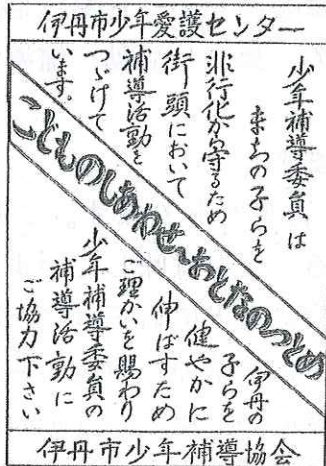 伊丹市少年愛護センター
少年補導委員は
まちの子らを
非行化から守るため
街頭において
補導活動を
つづけて
います。
こどものしあわせ、おとなのつとめ
伊丹の
子らを
健やかに
伸ばすため
ご理かいを賜わり
少年補導委員の
補導活動に
ご協力下さい
伊丹市少年補導協会